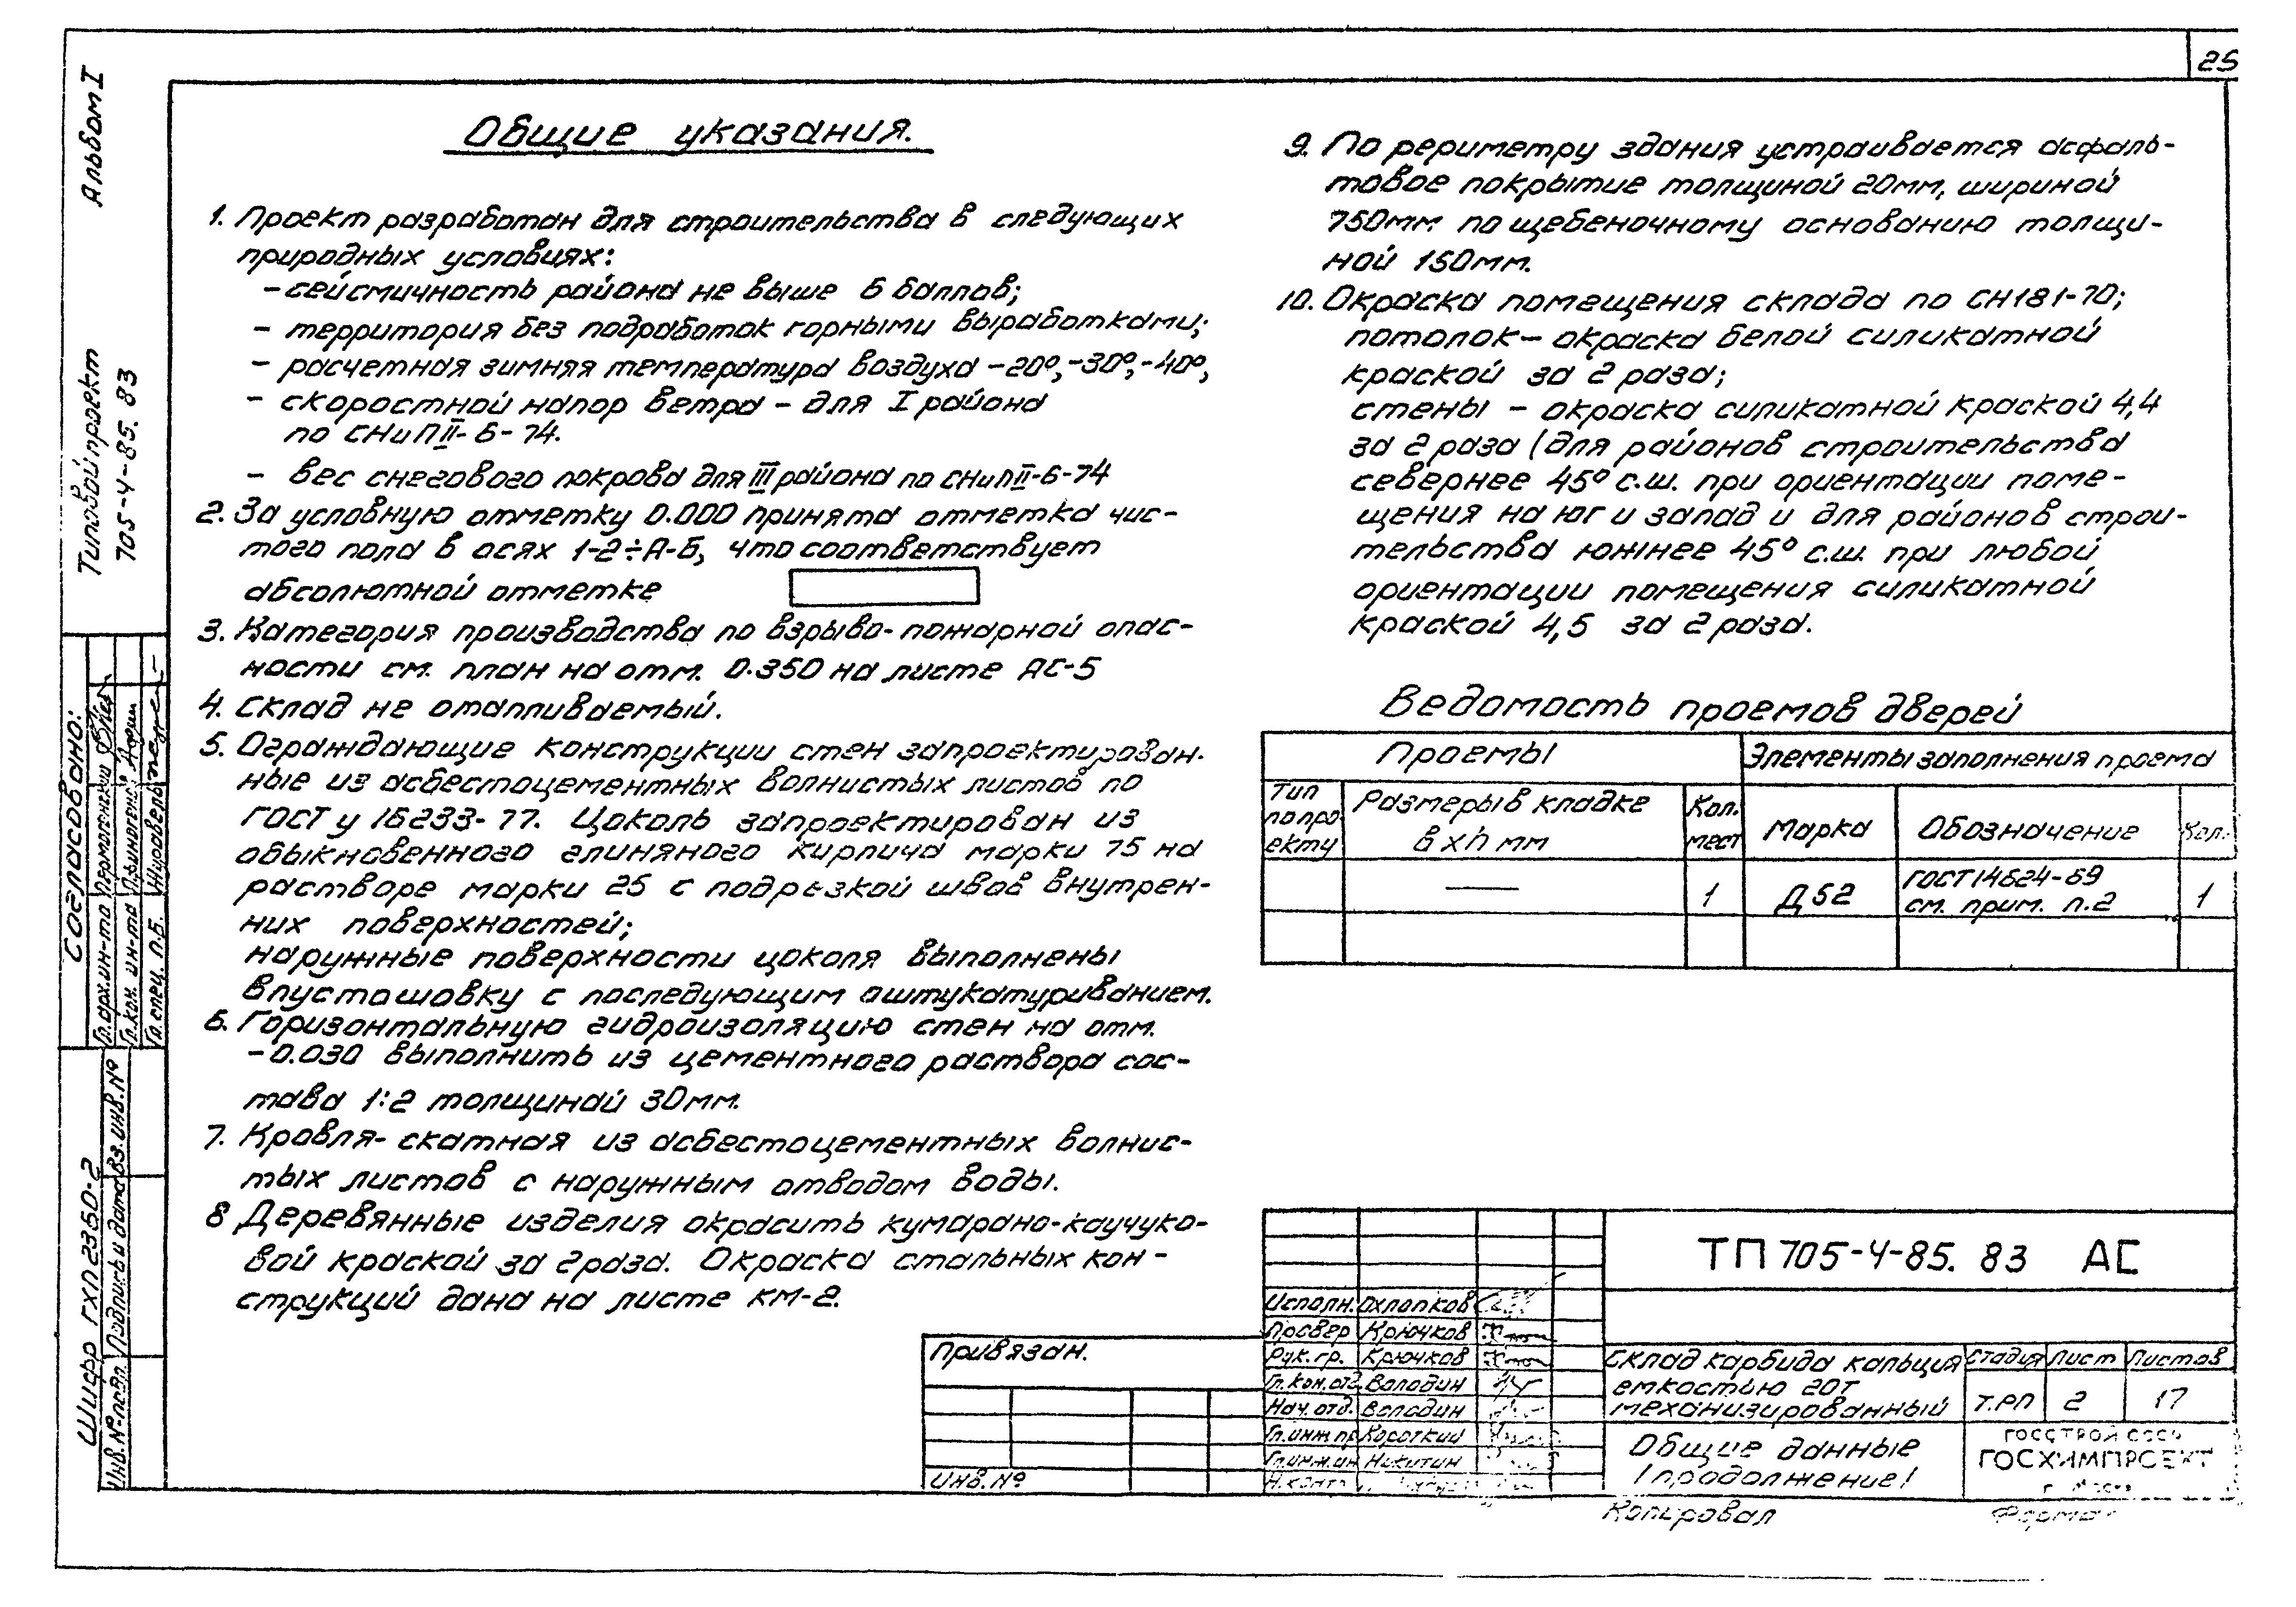 25
Альбом I
Типовой проект
705-4-85. 83
Общие указания.
1. Проект разработан для строительства в следующих
природных условиях:
- сейсмичность района не выше 6 баллов;
- территория без подработок горными выработками;
- расчетная зимняя температура воздуха -20°,-30°,-40°,
- скоростной напор ветра - для I района
по СНиП II-6-74.
- вес снегового покрова для III района по СНиП II-6-74
2. За условную отметку 0.000 принята отметка чис-
того пола в осях 1-2÷А-Б, что соответствует
абсолютной отметке
3. Категория производства по взрыво-пожарной опас-
ности см. план на отм. 0.350 на листе АС-5
4. Склад не отапливаемый.
5. Ограждающие конструкции стен запроектирован-
ные из асбестоцементных волнистых листов по
ГОСТ у 16233-77. Цоколь запроектирован из
обыкновенного глиняного кирпича марки 75 на
растворе марки 25 с подрезкой швов внутрен-
них поверхностей;
наружные поверхности цоколя выполнены
впусташовку с последующим оштукатуриванием.
6. Горизонтальную гидроизоляцию стен на отм.
-0.030 выполнить из цементного раствора сос-
тава 1:2 толщиной 30мм.
7. Кровля- скатная из асбестоцементных волнис-
тых листов с наружным отводом воды.
8 Деревянные изделия окрасить кумароно-каучуко-
вой краской за 2 раза. Окраска стальных кон-
струкций дана на листе КМ-2.
9. По рериметру здания устраивается асфаль-
товое покрытие толщиной 20мм, шириной
750мм по щебеночному основанию толщи-
ной 150мм.
10. Окраска помещения склада по СН181-70;
потолок - окраска белой силикатной
краской за 2 раза;
стены - окраска силикатной краской 4,4
за 2 раза (для районов строительства
севернее 45° с.ш. при ориентации поме-
щения на юг и запад и для районов строи-
тельства южнее 45° с.ш. при любой
ориентации помещения силикатной
краской 4,5 за 2 раза.
Ведомость проемов дверей
Проемы Элементы заполнения проема
Тип по проекту Размеры в кладке в x h мм Кол. мест Марка Обозначение Кол.
— 1 Д52 ГОСТ 14624-69 см. прим. п.2 1
Согласовано:
Гл.арх.ин-та
Гл.кон. ин-та
Гл.спец. П.Б.
Шифр ГХП2350-2
Инв.№подл. Подпись и дата Вз.инв.№
Привязан.
Инв.№
ТП 705-4-85. 83 АС
Исполн. Охлопков
Провер Крючков
Рук.гр. Крючков
Гл.кон.отд. Володин
Нач.отд. Володин
Гл.инж.пр Короткий
Гл.инж.ин Никитин
Н.контр.
Склад карбида кальция
емкостью 20т
механизированный
Стадия Лист Листов
Т.РП 2 17
Общие данные
(продолжение)
ГОССТРОЙ СССР
ГОСХИМПРОЕКТ
г. Москва
Копировал
Формат